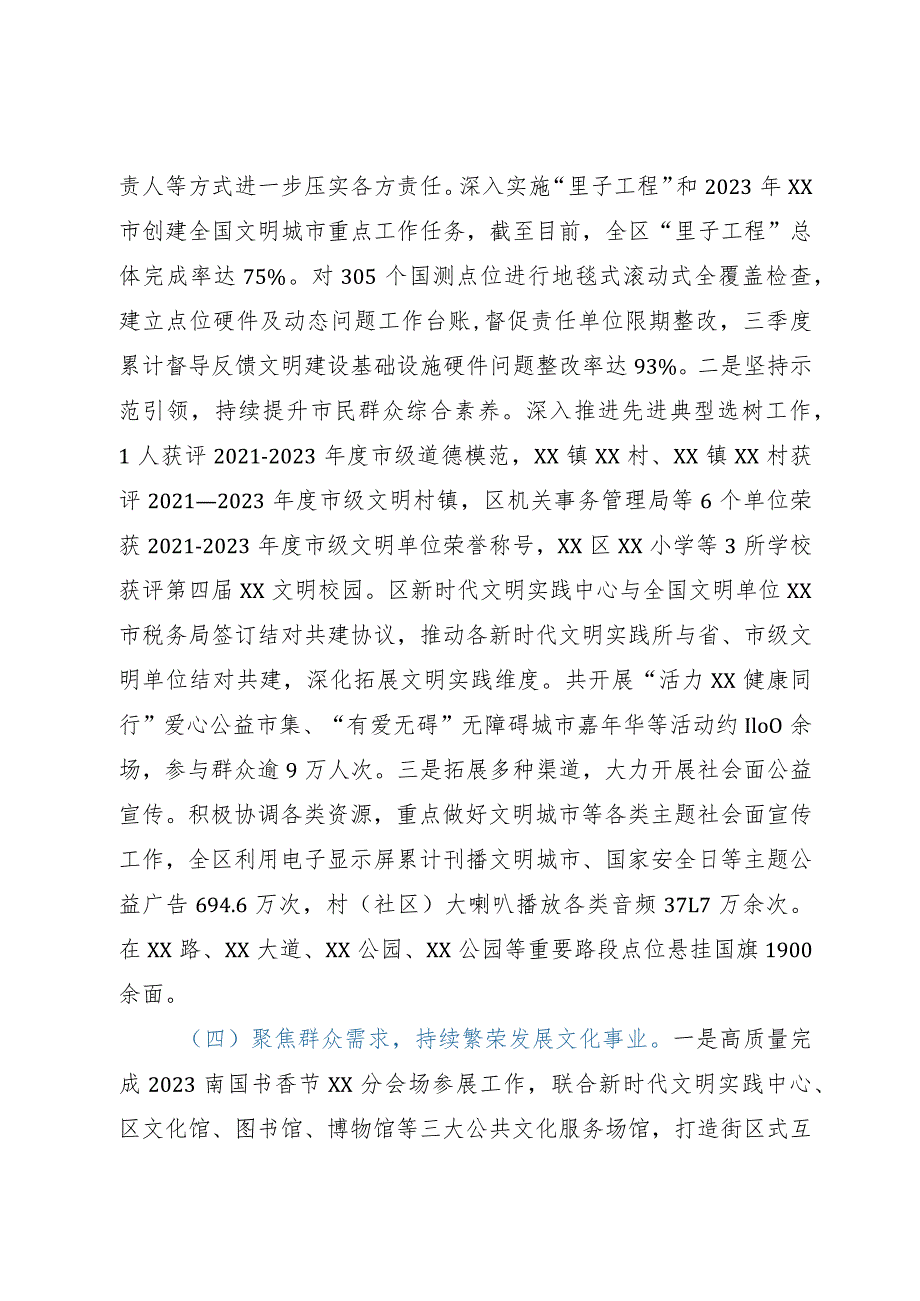 责人等方式进一步压实各方责任。深入实施“里子工程”和 2023 年 XX
市创建全国文明城市重点工作任务，截至目前，全区“里子工程”总
体完成率达 75%。对 305 个国测点位进行地毯式滚动式全覆盖检查，
建立点位硬件及动态问题工作台账,督促责任单位限期整改，三季度
累计督导反馈文明建设基础设施硬件问题整改率达 93%。二是坚持示
范引领，持续提升市民群众综合素养。深入推进先进典型选树工作，
1 人获评 2021-2023 年度市级道德模范，XX 镇 XX 村、XX 镇 XX 村获
评 2021—2023 年度市级文明村镇，区机关事务管理局等 6 个单位荣
获 2021-2023 年度市级文明单位荣誉称号，XX 区 XX 小学等 3 所学校
获评第四届 XX 文明校园。区新时代文明实践中心与全国文明单位 XX
市税务局签订结对共建协议，推动各新时代文明实践所与省、市级文
明单位结对共建，深化拓展文明实践维度。共开展“活力 XX 健康同
行”爱心公益市集、“有爱无碍”无障碍城市嘉年华等活动约 IloO 余
场，参与群众逾 9 万人次。三是拓展多种渠道，大力开展社会面公益
宣传。积极协调各类资源，重点做好文明城市等各类主题社会面宣传
工作，全区利用电子显示屏累计刊播文明城市、国家安全日等主题公
益广告 694.6 万次，村（社区）大喇叭播放各类音频 37L7 万余次。
在 XX 路、XX 大道、XX 公园、XX 公园等重要路段点位悬挂国旗 1900
余面。
（四）聚焦群众需求，持续繁荣发展文化事业。一是高质量完
成 2023 南国书香节 XX 分会场参展工作，联合新时代文明实践中心、
区文化馆、图书馆、博物馆等三大公共文化服务场馆，打造街区式互